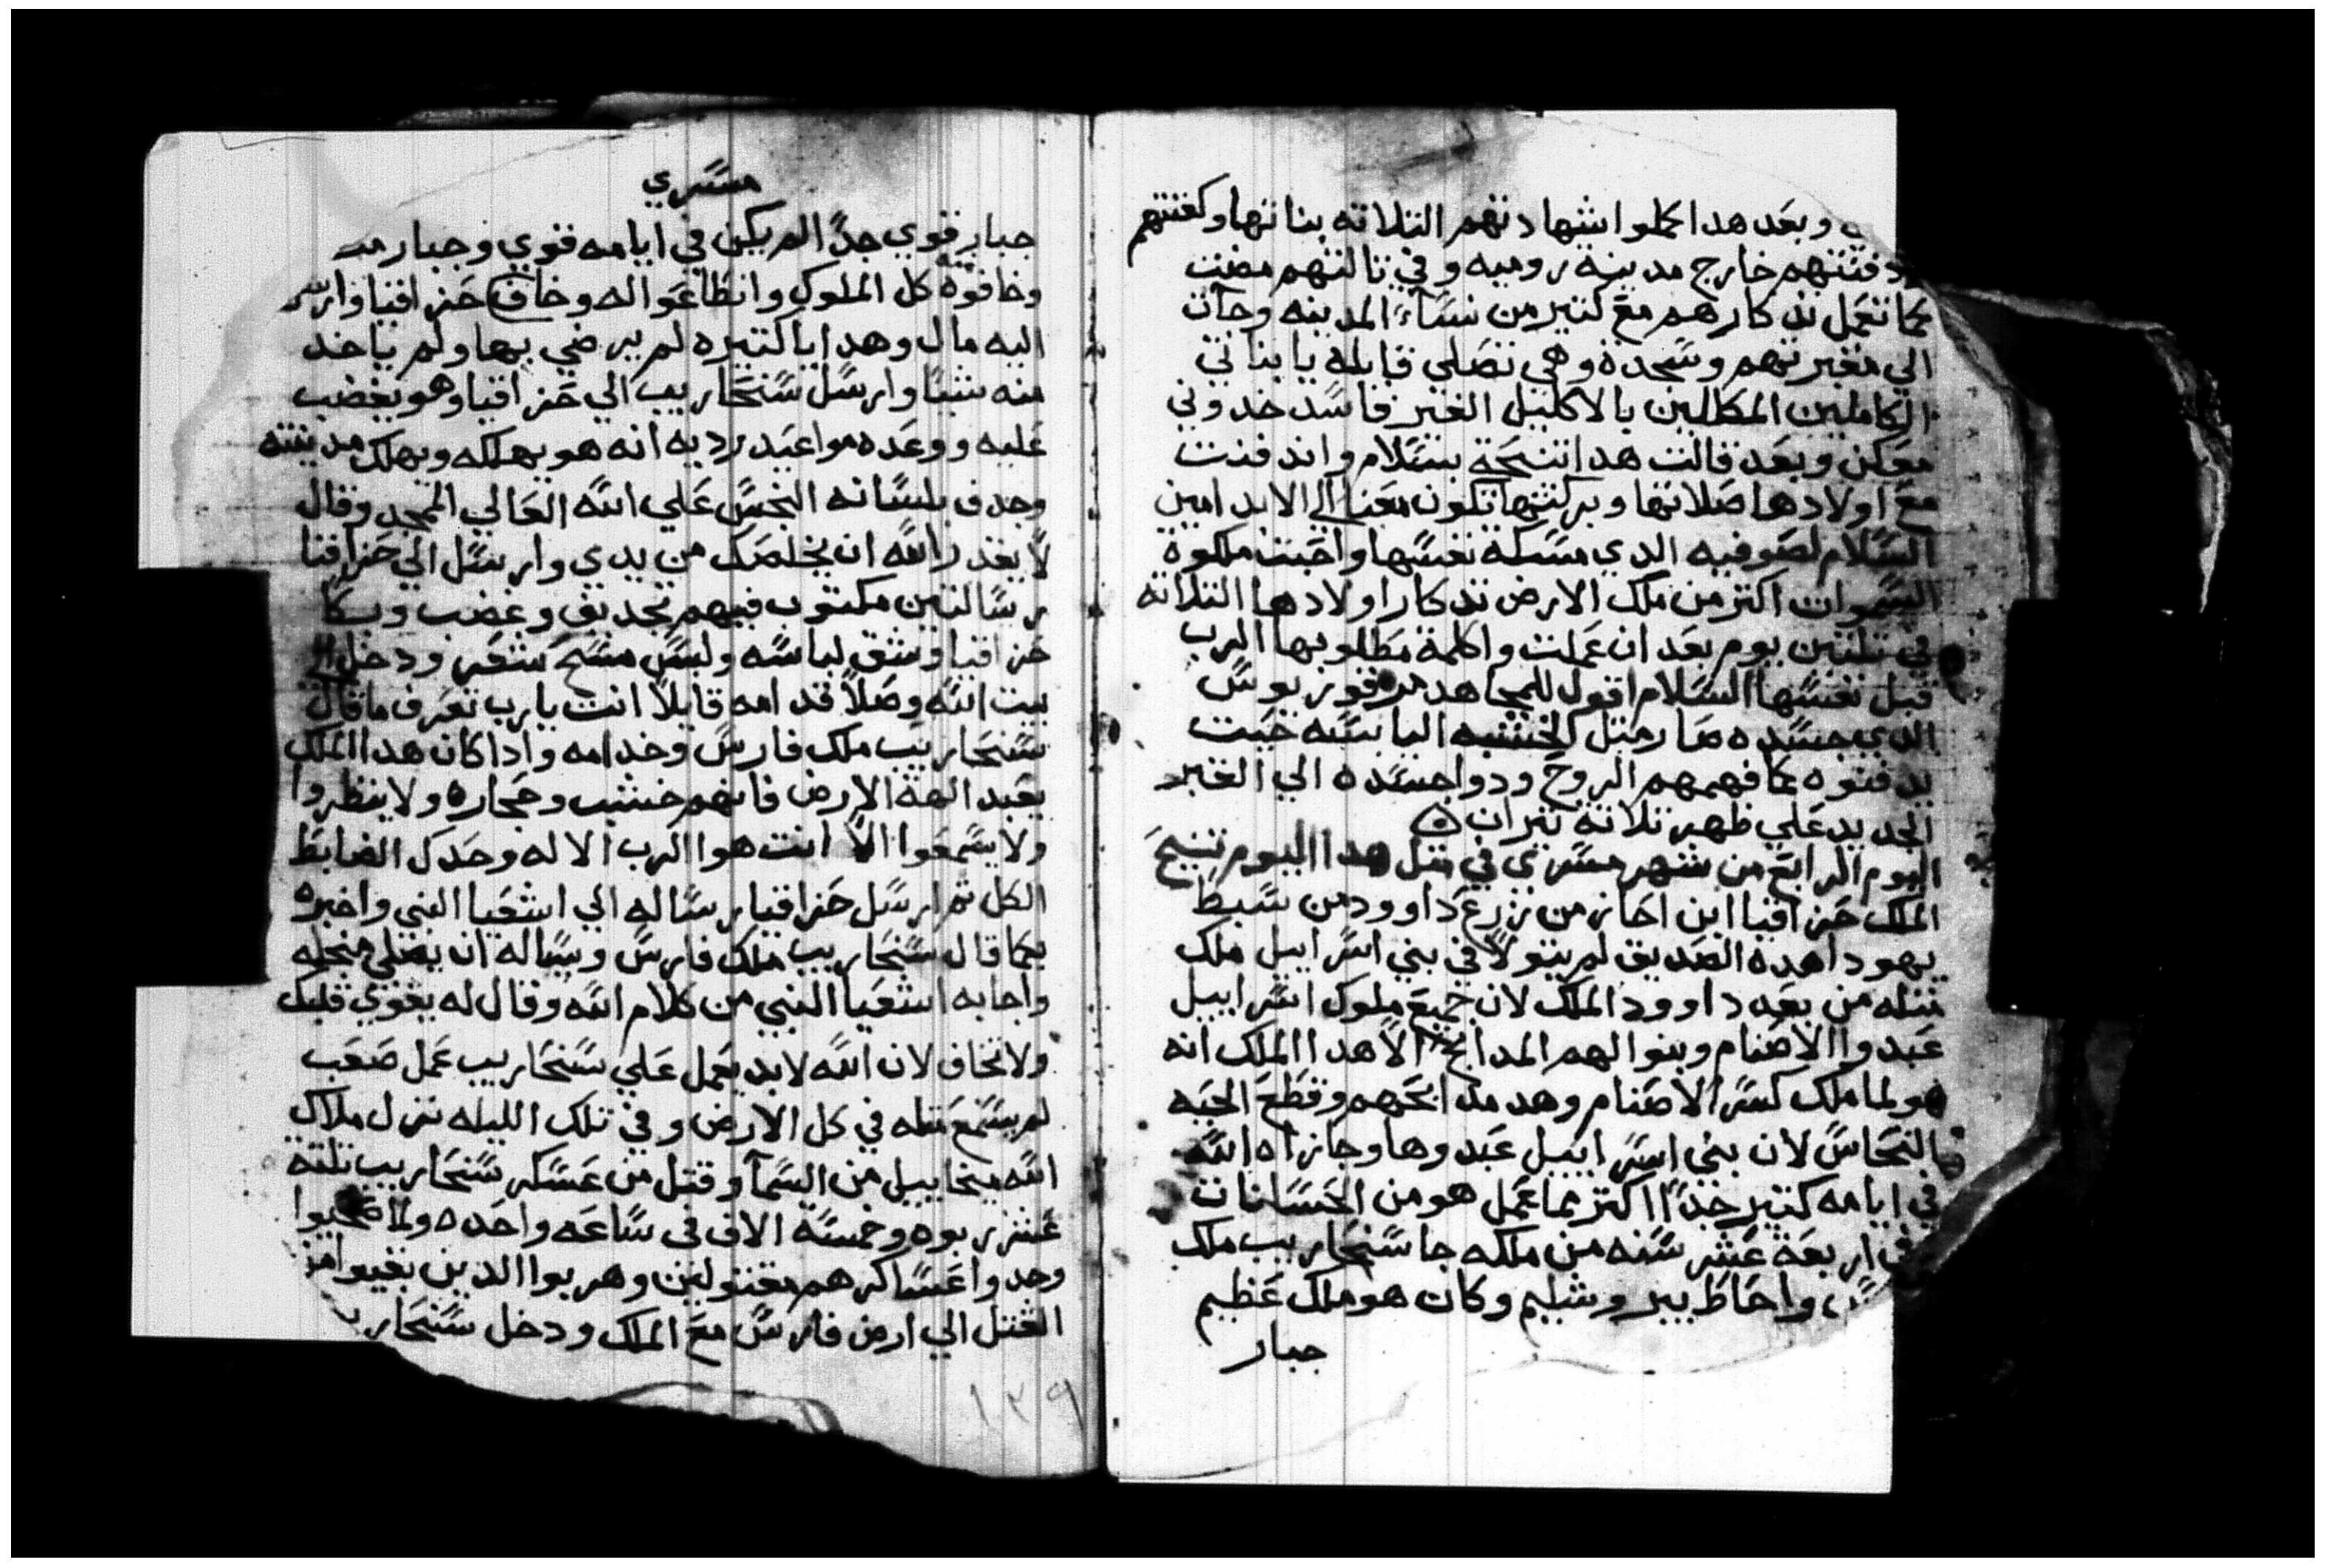 وبعد هدا كملوا شهادتهم التلاته بناتها وكفنتهم
ودفنتهم خارج مدينة روميه وفي تالتهم مضت
كما تعمل تدكارهم مع كتير من نسآء المدينه وجآت
الي مقبرتهم وسجدة وهي تصلي قايله يا بناتي
الكاملين المكاللين بالاكليل الغير فاسد خدوني
معكن وبعد قالت هدا تنيحة بسلام واندفنت
مع اولادها صلاتها وبركتها تكون معنا الي الابد امين
السلام لصوفيه الدي مسكة نفسها واحبت ملكوة
السموات اكتر من ملك الارض تدكار اولادها التلاته
في تلتين يوم بعد ان عملت واكلمة مطلوبها الرب
قبل نفسها السلام اقول للمجاهد مرقوريوس
الدي جسده صار متل الخشبه اليابسه حيت
يدفنوه كما فهمهم الروح ودوا جسده الي القبر
الجديد علي ظهر تلاتة تيران
اليوم الرابع من شهر مسري في متل هدا اليوم تنيح
الملك حزاقيا ابن احاز من زرع داوود من سبط
يهودا هده الصديق لم يتولا في بني اسراييل ملك
متله من بعد داوود الملك لان جميع ملوك اسراييل
عبدوا الاصنام وبنوا لهم المدابح الا هدا الملك انه
هو لما ملك كسر الاصنام وهد مدابحهم وقطع الحيه
النحاس لان بني اسراييل عبدوها وجازاه الله
في ايامه كتير جدا اكتر مما عمل هو من الحسانات
وفي اربعة عشر سنه من ملكه جا سنحاريب ملك
واحاط بيروشليم وكان هو ملك عظيم
جبار
مسري
جبار قوي جدا لم يكن في ايامه قوي وجبار
وخافوة منه كل الملوك وانطاعوا له وخاف حزاقيا وارسل
اليه مال وهدايا كتيره لم يرضي بها ولم ياخد
منه شيا وارسل سنحاريب الي حزاقيا وهو يغضب
عليه ووعده مواعيد رديه انه هو يهلكه ويهلك مدينته
وجدف بلسانه النجس علي الله العالي الممجد وقال
لا يقدر الله ان يخلصك من يدي وارسل الي حزاقيا
رسالتين مكتوب فيهم تجديف وغضب وبكا
حزاقيا وشق لباسه ولبس مسح شعر ودخل الي
بيت الله وصلا قدامه قايلا انت يارب تعرف ما قال
سنحاريب ملك فارس وخدامه وادا كان هدا الملك
يعبد الهة الارض فانهم خشب وحجاره ولا ينظروا
ولا يسمعوا الا انت هوا الرب الاله وحدك الضابط
الكل تم ارسل حزاقيا رساله الي اشعيا النبي واخبره
بما قال سنحاريب ملك فارس وساله ان يصلي منجله
واجابه اشعيا النبي من كلام الله وقال له يقوي قلبك
ولا تخاف لان الله لابد يعمل علي سنحاريب عمل صعب
لم يسمع متله في كل الارض وفي تلك الليله نزل ملاك
الله ميخاييل من السمآ وقتل من عسكر سنحاريب تلتة
عشر ربوه وخمسة الاف في ساعه واحده ولما صحيوا
وجدوا عساكرهم مقتولين وهربوا الدين بقيوا من
القتل الي ارض فارس مع الملك ودخل سنحاريب
١٣٩